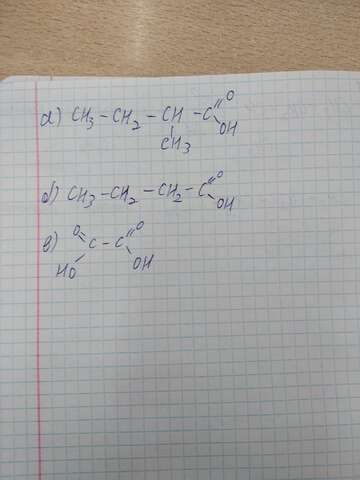 а) CH3 - CH2 - CH - C = O
OH
CH3
б) CH3 - CH2 - CH2 - C = O
OH
в) O = C - C = O
HO OH